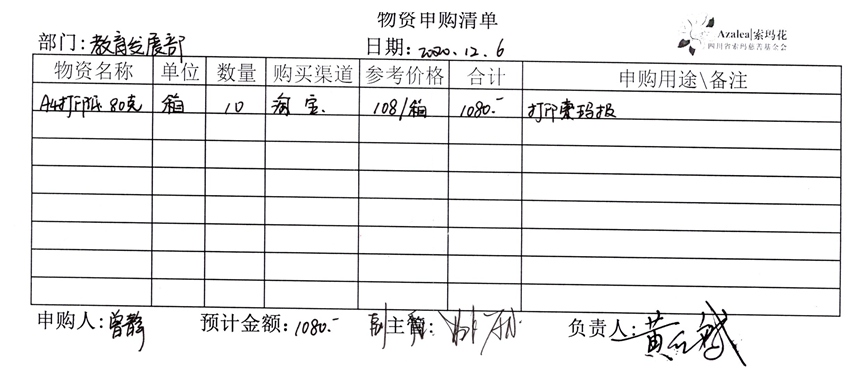 物资申购清单
Azalea|索玛花
四川省索玛慈善基金会
部门:教育发展部 日期:2020.12.6
物资名称 单位 数量 购买渠道 参考价格 合计 申购用途\备注
A4打印纸 80克 箱 10 淘宝. 108/箱 1080.- 打印索玛报
申购人:曾静 预计金额:1080.- 主管: 负责人:黄